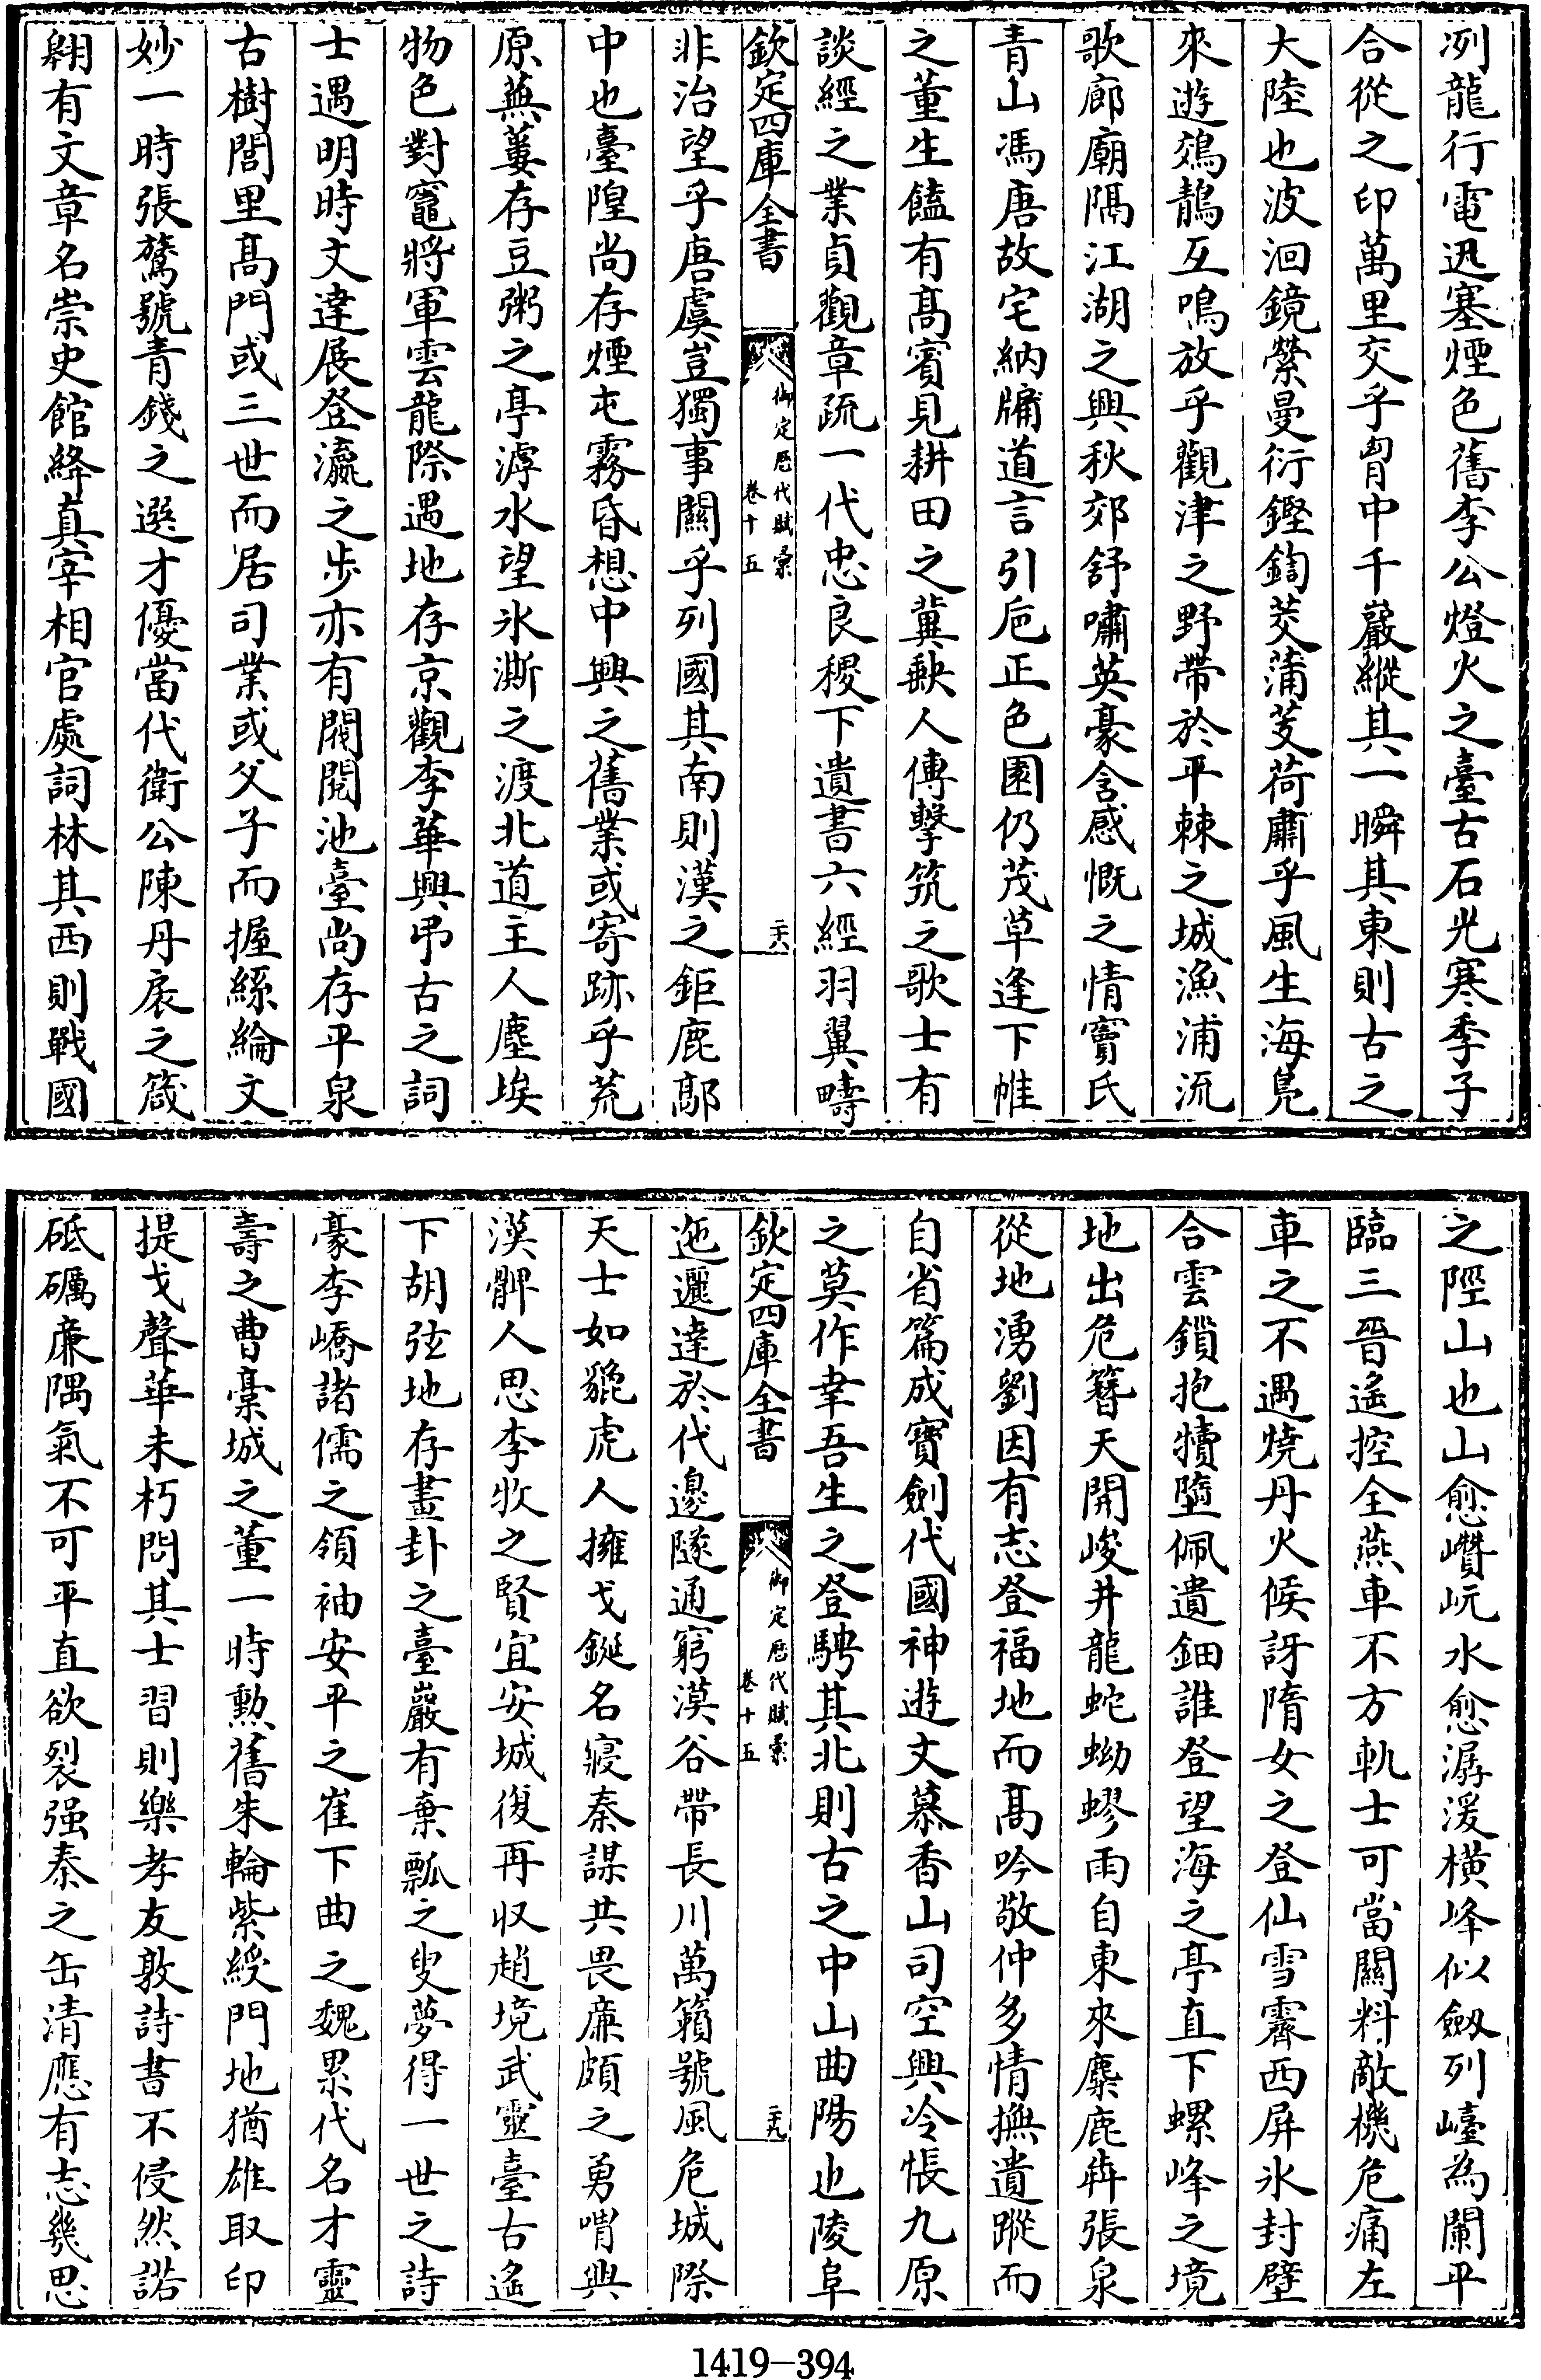 冽龍行電迅塞煙色舊李公燈火之臺古石光寒季子
合從之印萬里交乎胷中千巖縱其一瞬其東則古之
大陸也波洄鏡縈曼衍鏗鍧茭蒲芰荷肅乎風生海鳧
來遊鵁鶄互鳴放乎觀津之野帶於平棘之城漁浦流
歌廊廟隔江湖之興秋郊舒嘯英豪含感慨之情竇氏
青山馮唐故宅納牖道言引巵正色園仍茂草逢下帷
之董生饁有髙賓見耕田之冀缺人傳擊筑之歌士有
談經之業貞觀章疏一代忠良稷下遺書六經羽翼疇
欽定四庫全書
御定歷代賦彙
卷十五
二十八
非治望乎唐虞豈獨事關乎列國其南則漢之鉅鹿鄗
中也臺隍尚存煙屯霧昏想中興之舊業或寄跡乎荒
原蕪蔞存豆粥之亭滹水望氷澌之渡北道主人塵埃
物色對竈將軍雲龍際遇地存京觀李華興弔古之詞
士遇明時文達展登瀛之步亦有閥閱池臺尚存平泉
古樹閭里髙門或三世而居司業或父子而握絲綸文
妙一時張鷟號青錢之選才優當代衛公陳丹扆之箴
翱有文章名崇史館絳真宰相官處詞林其西則戰國
之陘山也山愈巑岏水愈潺湲橫峰似劔列嶂為闌平
臨三晉遙控全燕車不方軌士可當關料敵機危痛左
車之不遇燒丹火候訝隋女之登仙雪霽西屏氷封壁
合雲鎖抱犢墮佩遺鈿誰登望海之亭直下螺峰之境
地出危簪天開峻井龍蛇蚴蟉雨自東來麋鹿犇張泉
從地湧劉因有志登福地而髙吟敬仲多情撫遺蹤而
自省篇成寶劍代國神遊文慕香山司空興冷悵九原
之莫作幸吾生之登騁其北則古之中山曲陽也陵阜
欽定四庫全書
御定歷代賦彙
卷十五
二十九
迤邐達於代邊隧通窮漠谷帶長川萬籟號風危城際
天士如貔虎人擁戈鋋名寢秦謀共畏亷頗之勇啃興
漢髀人思李牧之賢宜安城復再収趙境武靈臺古遙
下胡弦地存畫卦之臺巖有棄瓢之叟夢得一世之詩
豪李嶠諸儒之領袖安平之崔下曲之魏累代名才靈
壽之曹槀城之董一時勲舊朱輪紫綬門地猶雄取印
提戈聲華未朽問其士習則樂孝友敦詩書不侵然諾
砥礪亷隅氣不可平直欲裂强秦之缶清應有志幾思
1419-394